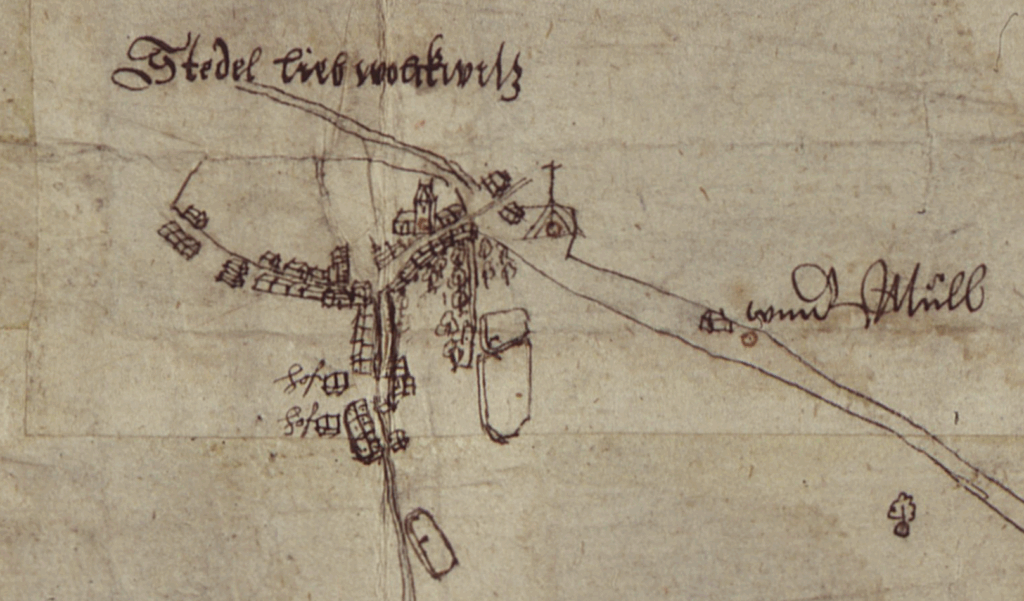 Stedel liebwolckwitz
wind Müll
hof
hof